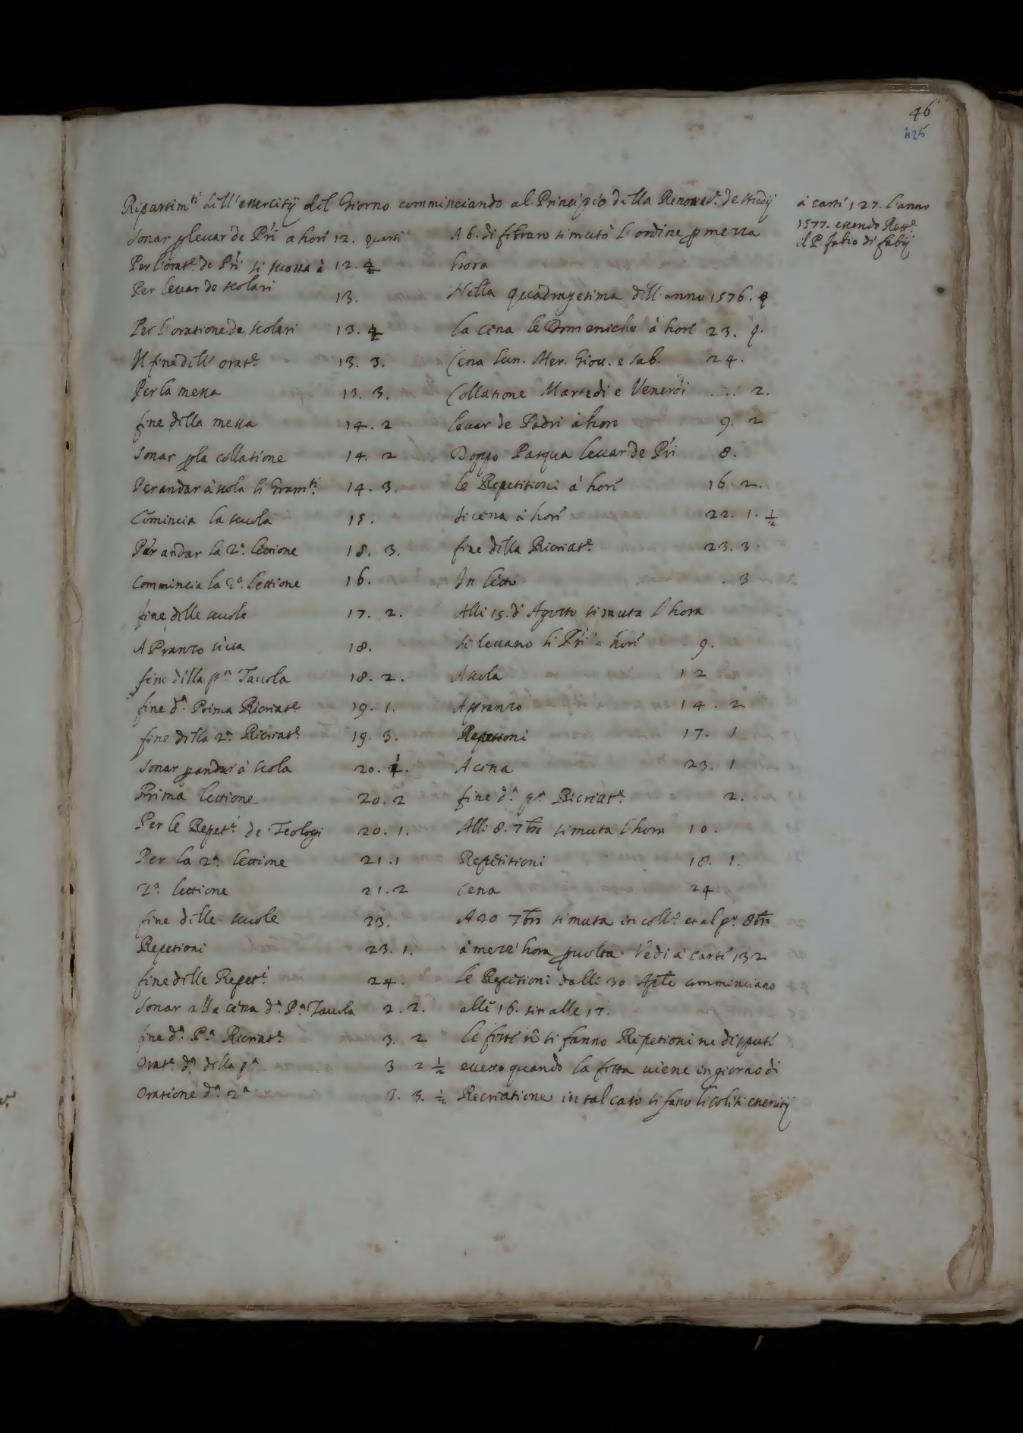 46
425
Ripartim.ti dell'essercitij del Giorno comminciando al Principio della Renovat.e de studij
à carti 127. l'anno
1577. essendo Rett.e
il P. fabio di fabij
Sonar p levar de Pri a hori 12. quarti
Per l'orat.e de Pri si suona à 12. 2
Per levar de scolari 13.
Per l'oratione de scolari 13. 2
Il fine dell' orat.e 13. 3.
Per la messa 13. 3.
fine della messa 14. 2
Sonar p la collatione 14. 2
Per andar à scola li Gram.ti 14. 3.
Comincia la scuola 15.
Per andar la 2.a lettione 18. 3.
Commincia la 2.a lettione 16.
fine delle scuole 17. 2.
A Pranzo si va 18.
fine della p.a Tavola 18. 2.
fine d.a Prima Ricriat.e 19. 1.
fine della 2.a Ricriat.e 19. 3.
Sonar p andar à scola 20. 1.
Prima lettione 20. 2
Per le Repet.i de Teologi 20. 1.
Per la 2.a lettione 21. 1
2.a lettione 21. 2
fine delle scuole 23.
Repetioni 23. 1.
fine delle Repet.i 24.
Sonar alla cena d.a P.a Tavola 2. 2.
fine d.a P.a Ricriat.e 3. 2
Orat.e d.a della p.a 3 2 ½
Oratione d.a 2.a 3. 3. ½
A 6. di febraro si mutò l'ordine p mezza
hora
Nella quadragesima dell'anno 1576.
la cena le Domeniche à hori 23.
Cena lun. Mer. Giov. e Sab. 24.
Collatione Martedi e Venerdi .... 2.
levar de Padri à hori 9. 2
Doppo Pasqua levar de Pri 8.
le Repetitioni à hori 16. 2.
si cena à hori 22. 1. ½
fine della Ricriat.e 23. 3.
In letto . 3
Alli 15. di Agosto si muta l'hora
si levano li Pri a hori 9.
A scola 12
A pranzo 14. 2
Repetioni 17. 1
A cena 23. 1
fine d.a p.a Ricriat.e 2.
Alli 8. 7bre si muta l'hora 10.
Repetitioni 18. 1.
Cena 24
A 20 7bre si muta in coll.o et al p.o 8bre
à mezz'hora p volta. Vedi à carti 132
le Repetitioni dalli 30 Aple comminciano
alle 16. sin alle 17.
le feste nõ si fanno Repetioni ne disputi
eccetto quando la festa viene in giorno di
Recriatione in tal caso si fano li soliti essercitij